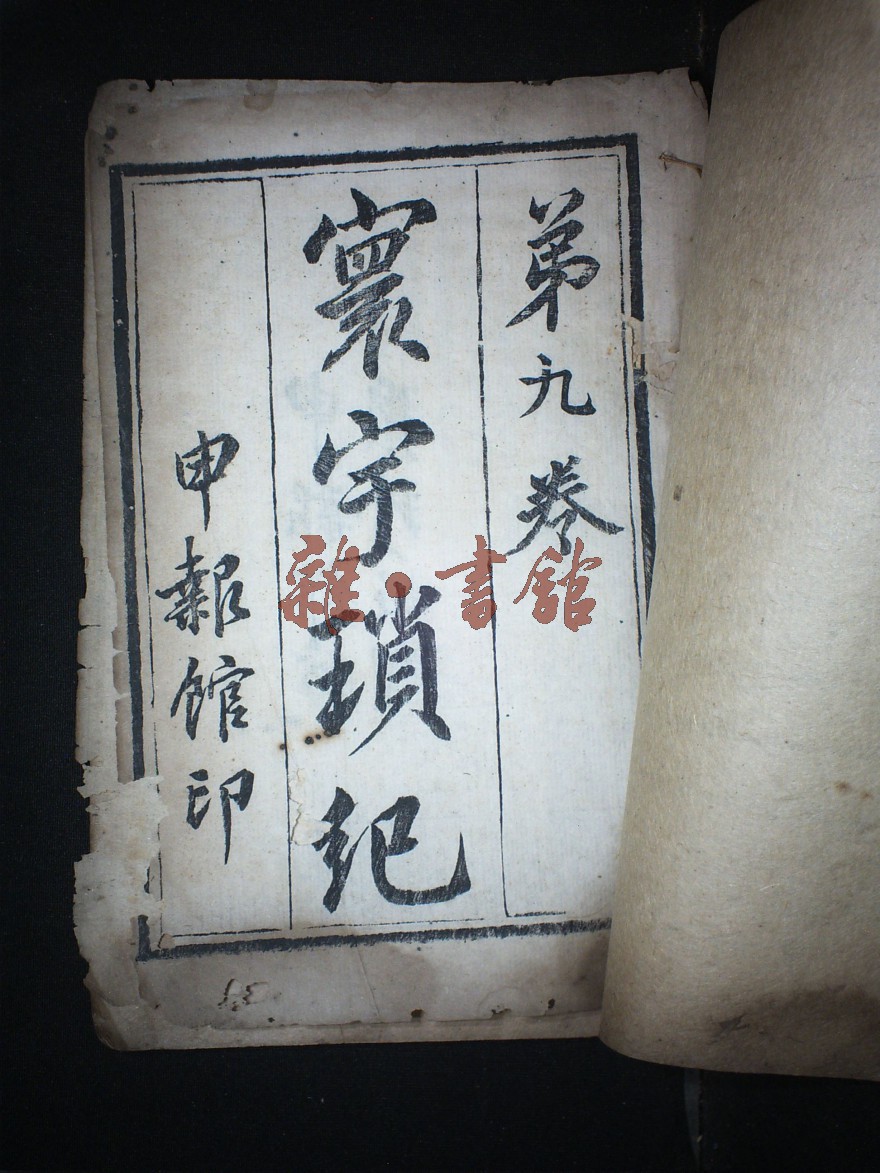 第九卷
寰宇瑣紀
申報館印
雜·書館